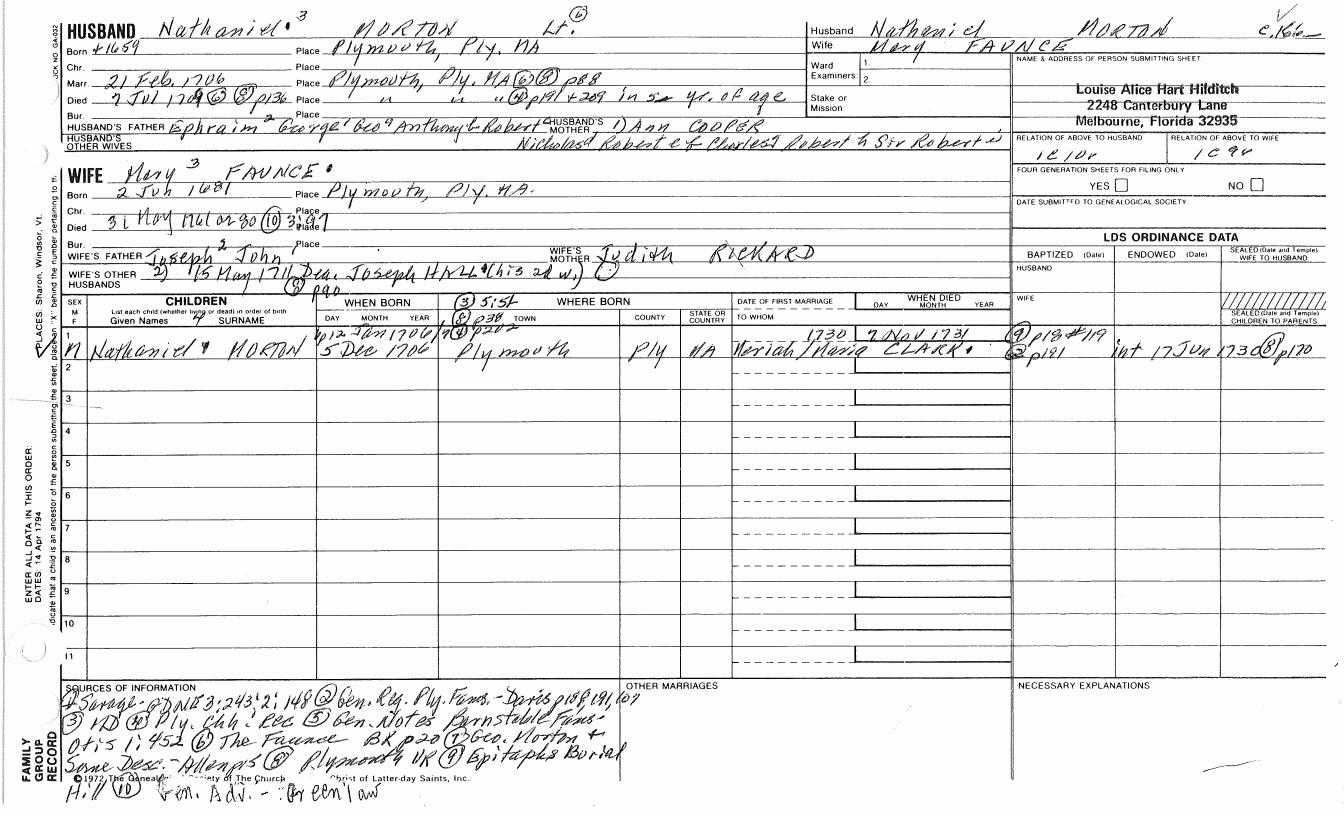 HUSBAND Nathaniel 3 MORTON Lt. (6)
Born ±1659 Place Plymouth, Ply, MA
Chr. Place
Marr 21 Feb. 1706 Place Plymouth, Ply. MA (6) (8) p88
Died 7 Jul 1709 (6) (8) p136 Place " " " (4) p191 + 209 in 5 yr. of age
Bur. Place
HUSBAND'S FATHER Ephraim 2 George 1 Geo Anthony Robert HUSBAND'S MOTHER 1) Ann COOPER
HUSBAND'S OTHER WIVES Nicholas Robert Charles Robert h Sir Robert
Husband Nathaniel MORTON
Wife Mary FAUNCE
Ward 1.
Examiners: 2.
Stake or Mission
NAME & ADDRESS OF PERSON SUBMITTING SHEET
Louise Alice Hart Hilditch
2248 Canterbury Lane
Melbourne, Florida 32935
RELATION OF ABOVE TO HUSBAND RELATION OF ABOVE TO WIFE
1C 10r 1C 9r
FOUR GENERATION SHEETS FOR FILING ONLY
YES NO
DATE SUBMITTED TO GENEALOGICAL SOCIETY
WIFE Mary 3 FAUNCE
Born 2 Jun 1681 Place Plymouth, Ply. MA.
Chr. Place
Died 31 May 1761 or 80 (10) 3:97 Place
Bur. Place
WIFE'S FATHER Joseph 2 John 1 WIFE'S MOTHER Judith RICKARD
WIFE'S OTHER HUSBANDS 2) 15 May 1716 Dea. Joseph HALL (his 2d w.)
(8) p90
LDS ORDINANCE DATA
BAPTIZED (Date) ENDOWED (Date) SEALED (Date and Temple) WIFE TO HUSBAND
HUSBAND
WIFE
SEALED (Date and Temple) CHILDREN TO PARENTS
SEX M F
CHILDREN
List each child (whether living or dead) in order of birth
Given Names 4 SURNAME
WHEN BORN
DAY MONTH YEAR
(3) 5:54 WHERE BORN
p38 TOWN COUNTY STATE OR COUNTRY
DATE OF FIRST MARRIAGE
TO WHOM
WHEN DIED
DAY MONTH YEAR
1 12 Jan 1706/7 (4) p202 1730 7 Nov 1731 (9) p18 #119
M Nathaniel MORTON 5 Dec 1706 Plymouth Ply MA Meriah/Maria CLARK (2) p191 int 17 Jun 1730 (8) p170
2
3
4
5
6
7
8
9
10
11
SOURCES OF INFORMATION
(1) Savage-GDNE 3:243; 2: 148 (2) Gen. Reg. Ply. Fams.-Davis p188, 191, 107
(3) MD (4) Ply. Chh. Rec (5) Gen. Notes Barnstable Fams-
Otis 1:452 (6) The Faunce BK p20 (7) Geo. Morton +
Some Desc.-Allen p5 (8) Plymouth VR (9) Epitaphs Burial
Hill (10) Gen. Adv.- Greenlaw
©1972 The Genealogical Society of The Church Christ of Latter-day Saints, Inc.
OTHER MARRIAGES
NECESSARY EXPLANATIONS
ENTER ALL DATA IN THIS ORDER:
DATES: 14 Apr 1794
PLACES: Sharon, Windsor, Vt.
FAMILY GROUP RECORD